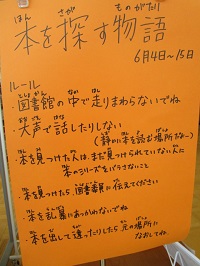 本を探す物語
6月4日~15日
ルール
・図書館の中で走りまわらないでね
・大声で話したりしない
(静かに本を読む場所だよー)
・本を見つけた人はまだ見つけられていない人に
本のシリーズをバラさないこと
・本を見つけたら図書委員に伝えてください
・本を乱暴にあつかわないでね
・本を出して違ったりしたら元の場所に
なおしてね。